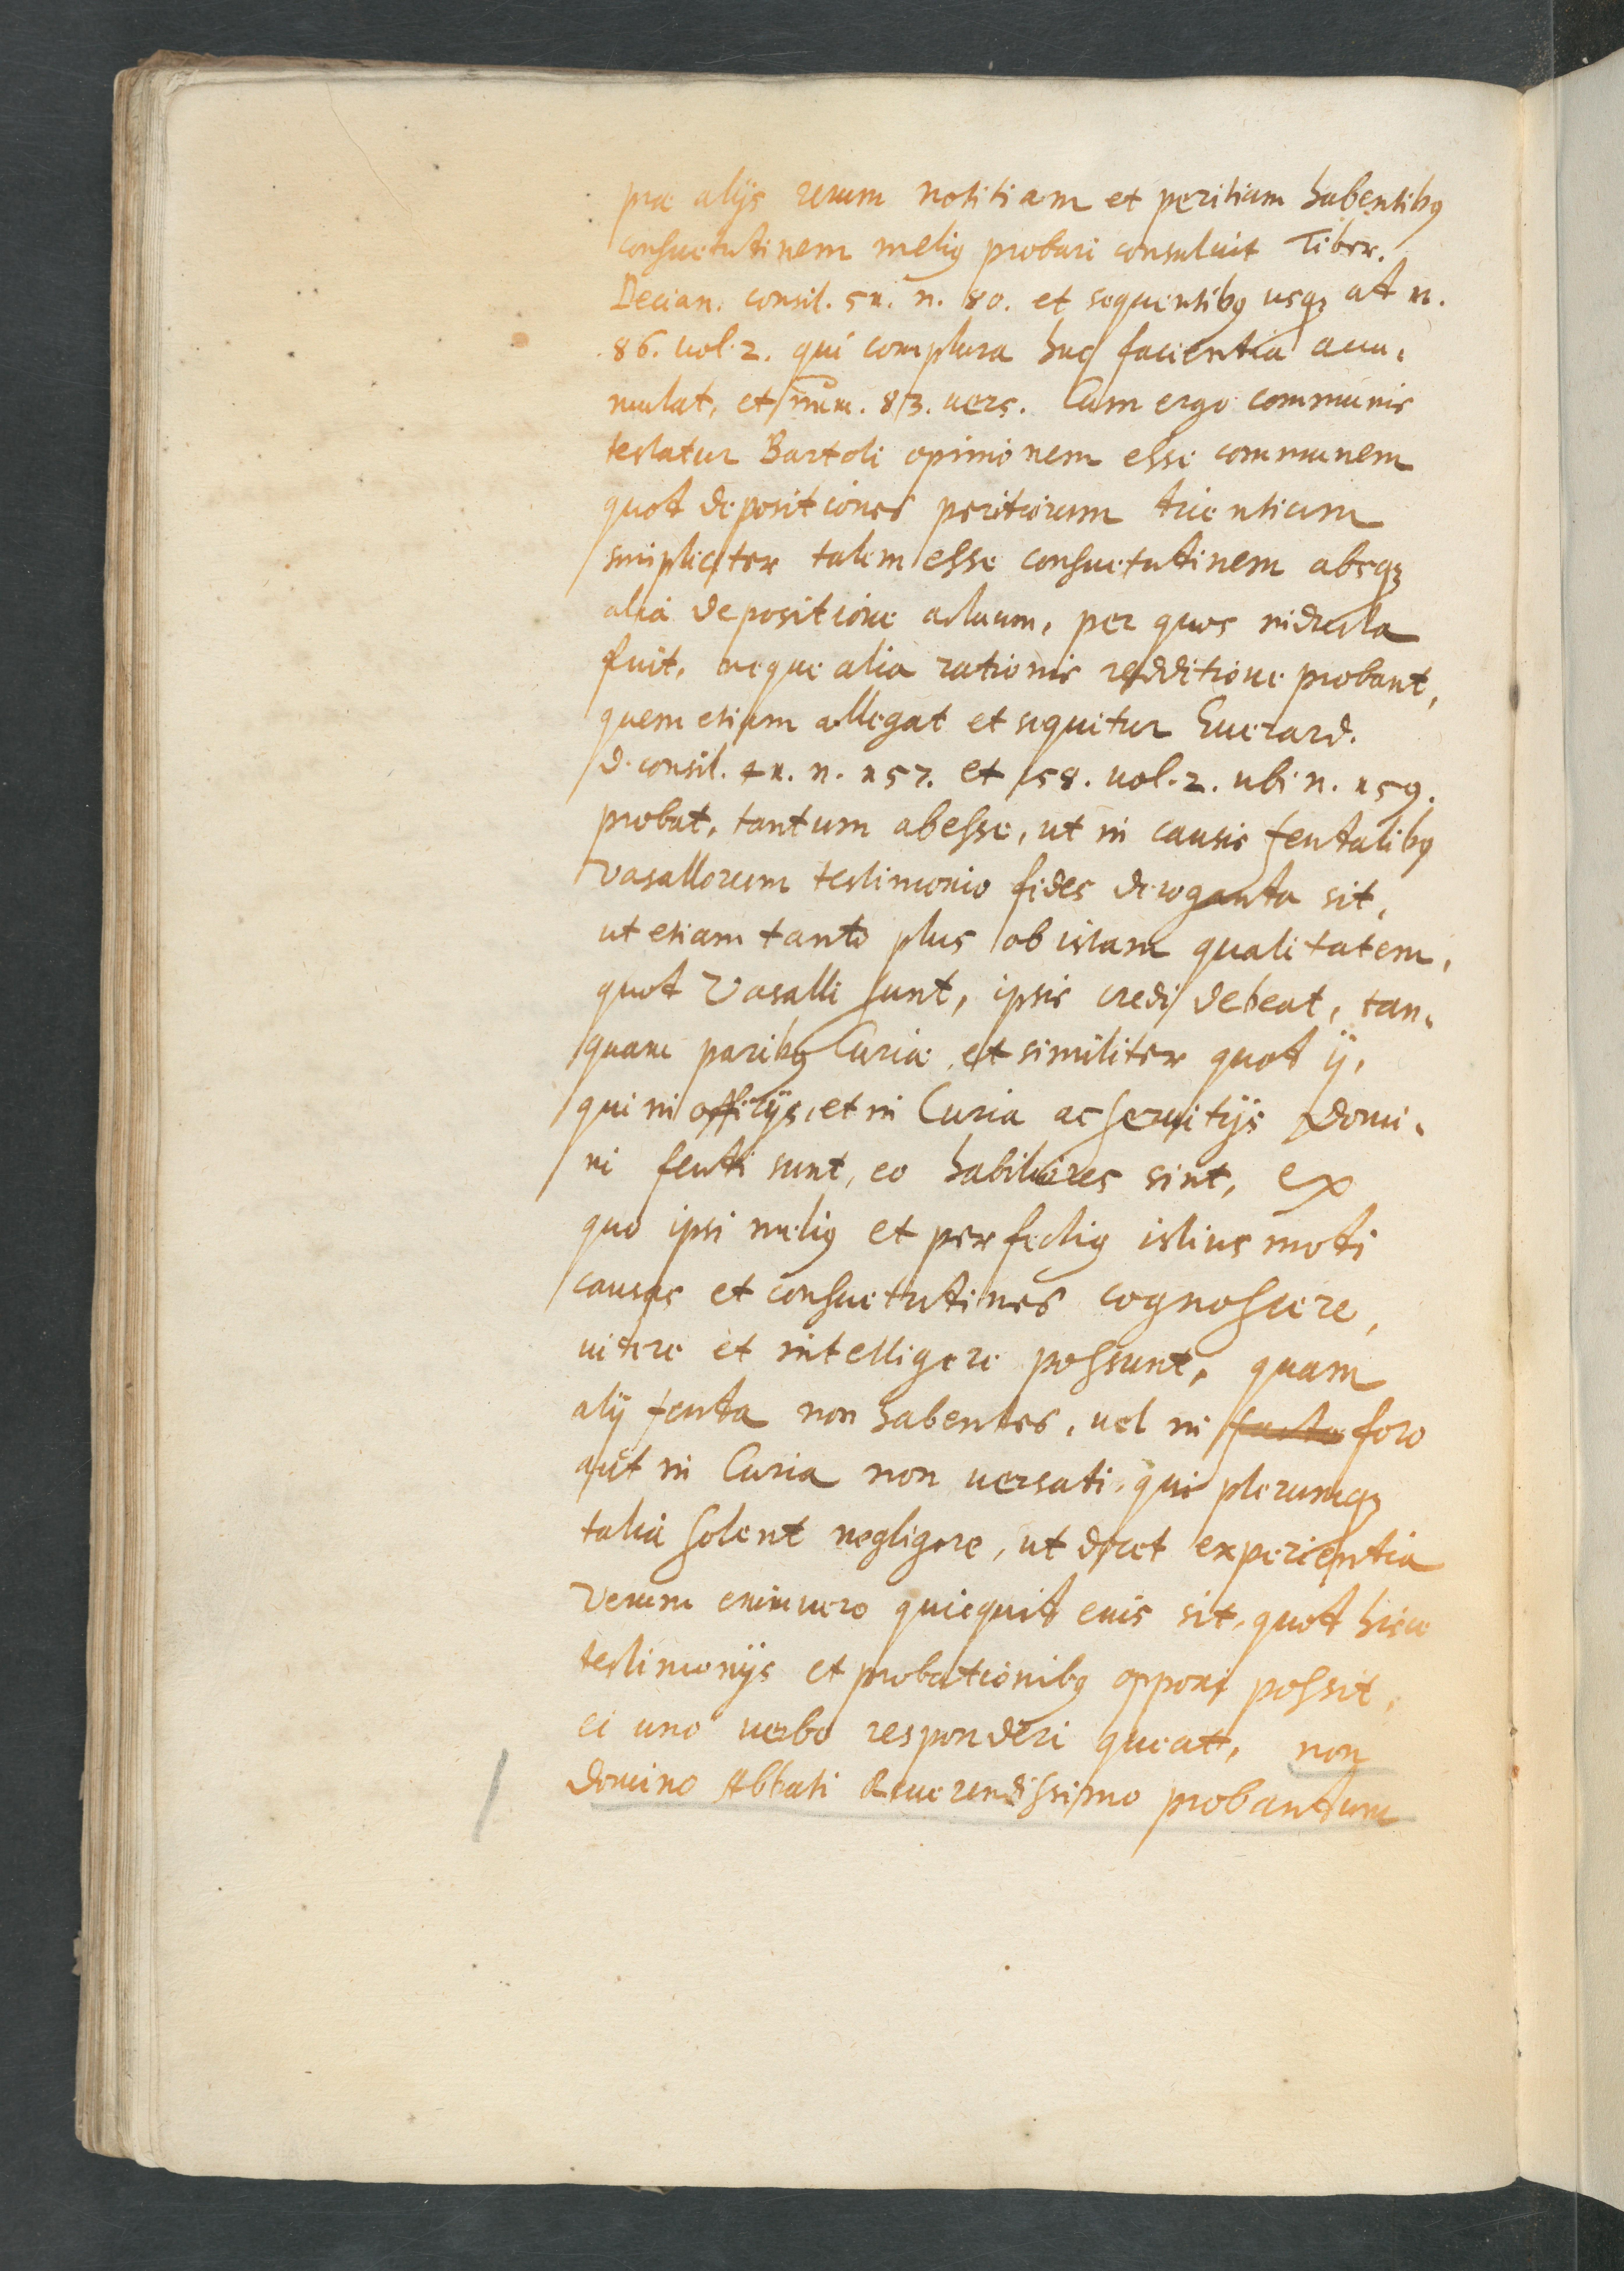 prae alijs rerum notitiam et peritiam habentibꝯ
consuetudinem meliꝯ probari consuluit Tiber.
Decian. consil. 51. n. 80. et sequentibꝯ usqꝫ ad n.
86. vol. 2. qui complura huc facientia accu-
mulat, et num. 83. vers. Cum ergo communis
testatur Bartoli opinionem esse communem
quod depositiones peritiorum dicentium
simpliciter talem esse consuetudinem absqꝫ
alia depositione actuum, per quos inducta
fuit, neque alia rationis redditione probant,
quem etiam allegat et sequitur Everard.
d. consil. 41. n. 157. et 158. vol. 2. ubi n. 159.
probat, tantum abesse, ut in causis feudalibꝯ
vasallorum testimonio fides deroganda sit,
ut etiam tanto plus ob istam qualitatem,
quod Vasalli sunt, ipsis credi debeat, tan-
quam paribꝯ Curiae, et similiter quod ij,
qui in officijs, et in Curia ac servitijs Domi-
ni feudi sunt, eo habiliores sint, ex
quo ipsi meliꝯ et perfectiꝯ istius modi
causas et consuetudines cognoscere,
videre et intelligere possunt, quam
alij feuda non habentes, vel in foro
aut in Curia non versati, qui plerumqꝫ
talia solent negligere, ut docet experientia
Verum enimvero quicquid eius sit, quod hisce
testimonijs et probationibꝯ opponi possit,
ei uno verbo responderi queat, non
Domino Abbati Reverendissimo probandum